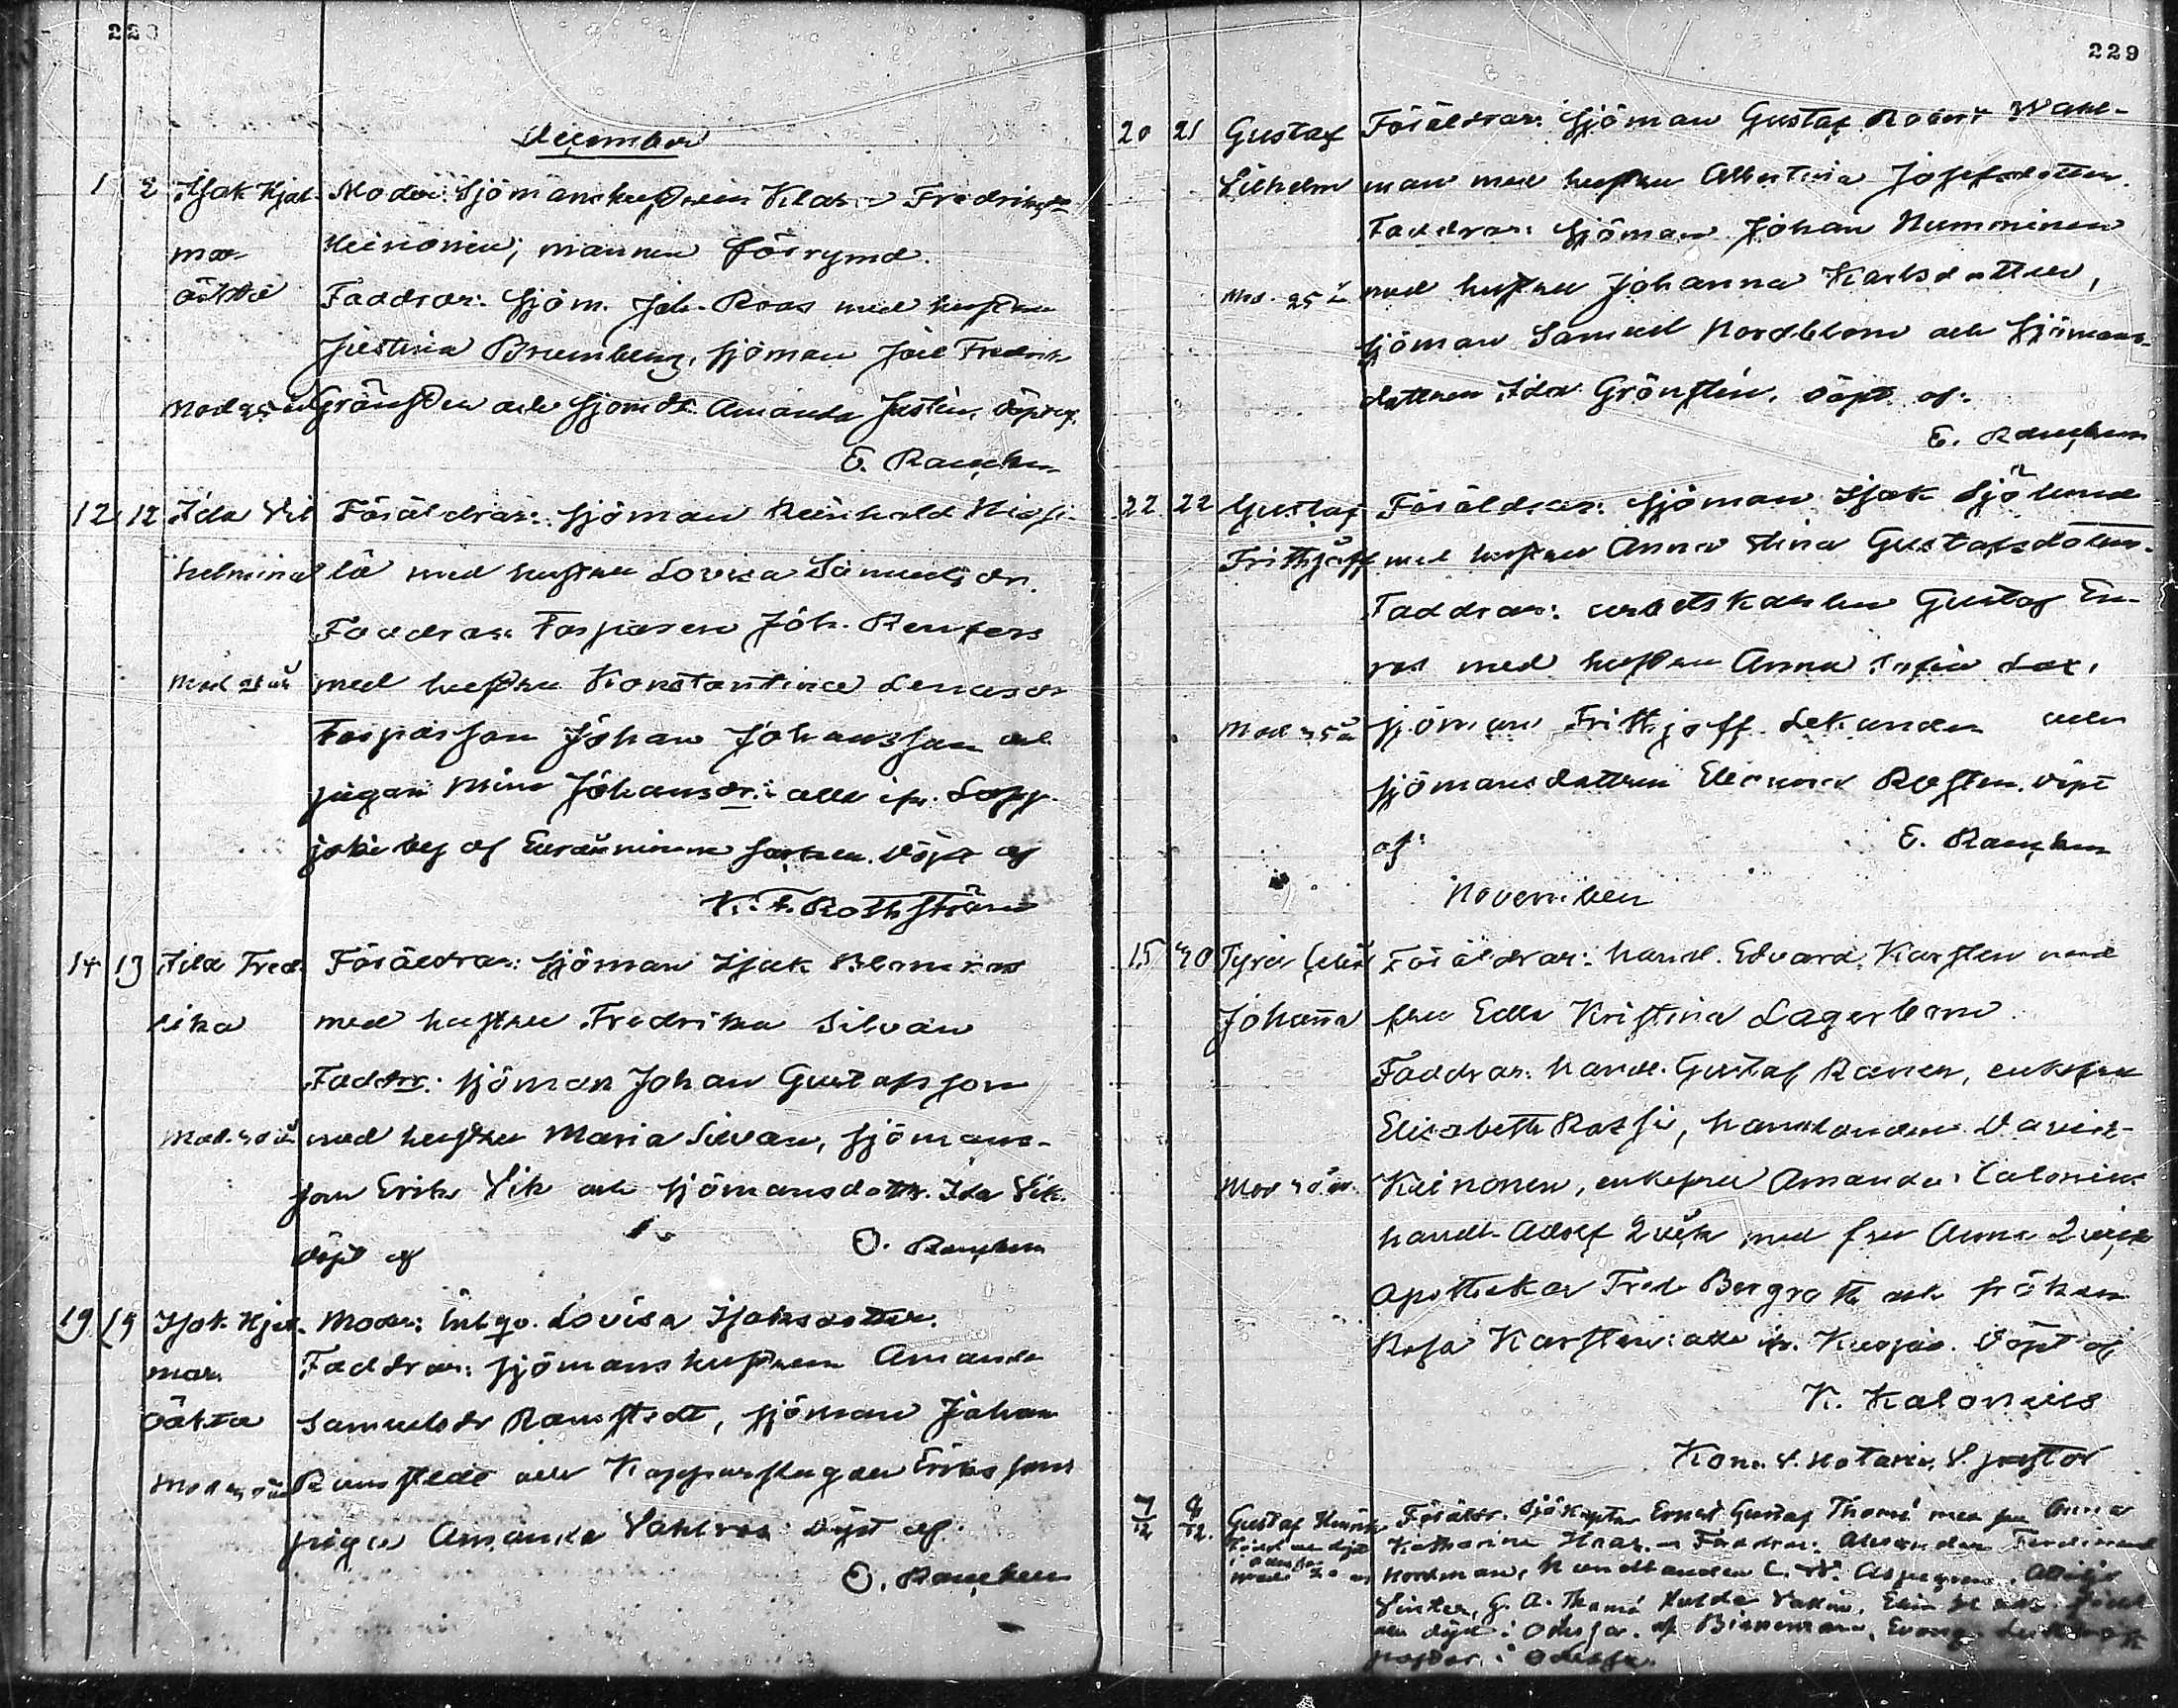 228
December
1 2 Isak Hjal- Moder: Sjömanshustrun Klara Fredriksdr
mar Heinonen; mannen förrymd.
oäkta Faddrar: Sjöm. Joh. Roos med hustru
Justina Brumberg, sjöman Joel Fredrik
Mod 25 år Grönsten och sjömdr Amanda Justin. Döpt af.
E. Rancken
12 12 Ida Vil- Föräldrar: sjöman Reinhold
helmina lä med hustru Lovisa Samuelsdr.
Faddrar: Torparen Joh. Renfors
Mod år med hustru Konstantina
Torparson Johan Johansson och
pigan Mina Johansdr: alla ifr. Lapp-
joki by af Euraåminne socken. Döpt af
K. F. Rothström
14 13 Fred- Föräldrar: sjöman Isak Blomroos
rika med hustru Fredrika Silvan
Faddrr: sjöman Johan Gustafsson
Mod. 40 år med hustru Maria Silvan, sjömans-
son Erik Vik och sjömansdottr. Ida Vik.
Döpt af O. Rancken
19 19 Isak Hjal- Moder: Lovisa Isaksdotter.
mar. Faddrar: sjömanshustrun Amanda
oäkta Samuelsdr Ramstedt, sjöman Johan
Mod år Ramstedt och Erikssons
piga Amanda Vahlroos. Döpt af.
O. Rancken
229
20 21 Gustaf Föräldrar: sjöman Gustaf Robert Wahl-
man med hustru Albertina Josefsdotter.
Faddrar: sjöman Johan Numminen
Mod. 25 år med hustru Johanna Karlsdotter,
sjöman Samuel Nordblom och sjömans-
dottren Ida Grönsten. Döpt af:
E. Rancken
22 22 Gustaf Föräldrar: sjöman Isak Sjölund
Frithjoff med hustru Anna Stina Gustafsdotter.
Faddrar: arbetskarlen Gustaf En-
ros med hustru Anna Sofia Lax,
Mod 35 år sjöman Frithjoff Lekander och
sjömansdottren Eleonora Rosten. Döpt
af: E. Rancken
November
15 30 Tyra Föräldrar: handl. Edvard Karsten med
Johanna fru Edla Kristina Lagerbom.
Faddrar: handl. Gustaf Ranin, enkefru
Elisabeth Rossi, handlanden David
Mod 40 år. Keinonen, enkefru Amanda Calonius
handl. Adolf Qvick med fru Anna Qvick
Apothekar Fred. Bergroth och fröken
Rosa Karsten: alla ifr. Kuopio. Döpt af
K. Kalonius
Kons. notarie, V. pastor
7/12 4/12 Gustaf Henrik Föräldr. Sjökapten Ernst Gustaf Thomé med fru Anna
Född och döpt Katharina Haar. Faddrar: Alexander Ferdinand
i Odessa Nordman, handlanden C. W. Aspegren,
G. A. Thomé Hulda
och döpt i Odessa. af Evang. Luth.
pastor i Odessa.